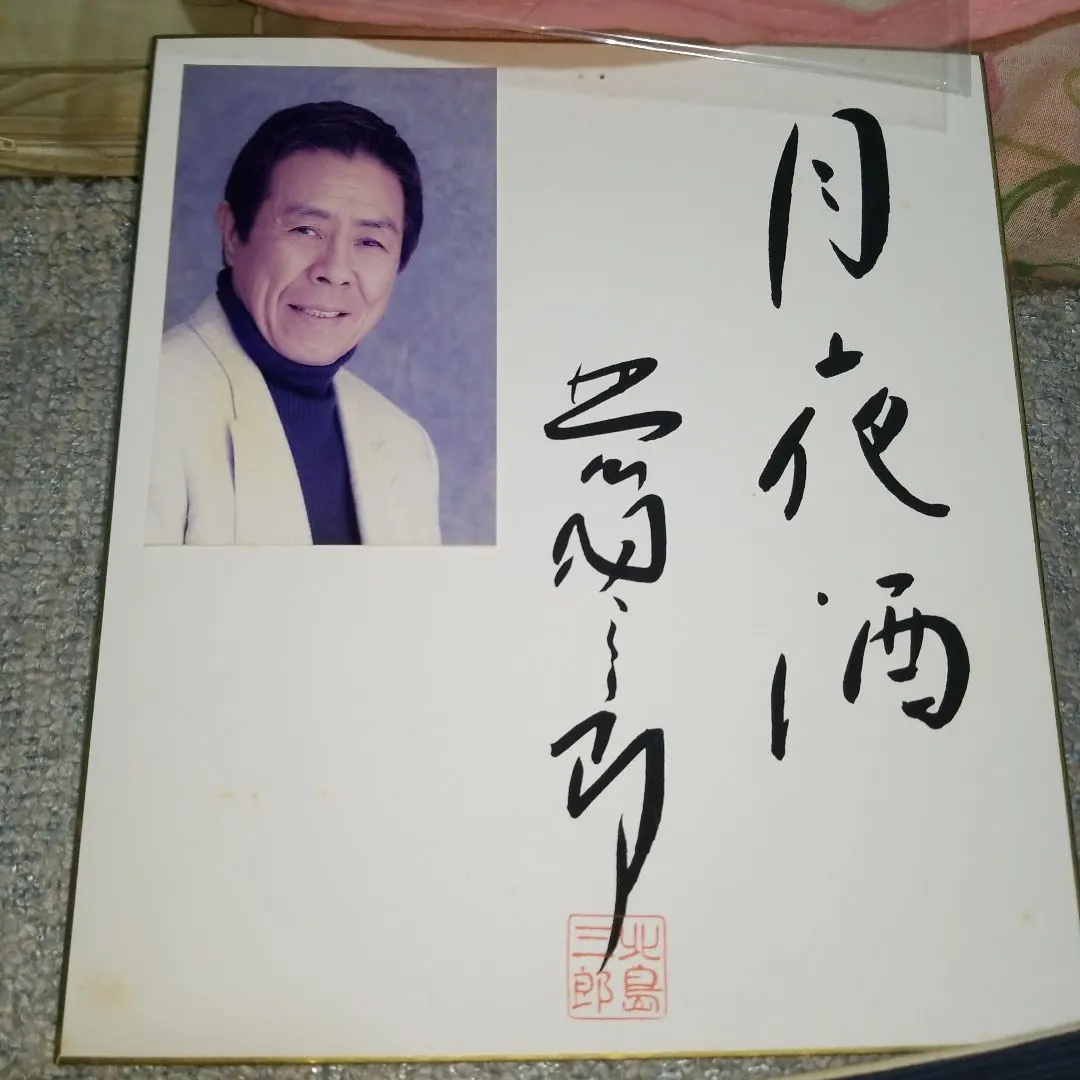 月夜酒
北島三郎
北島三郎